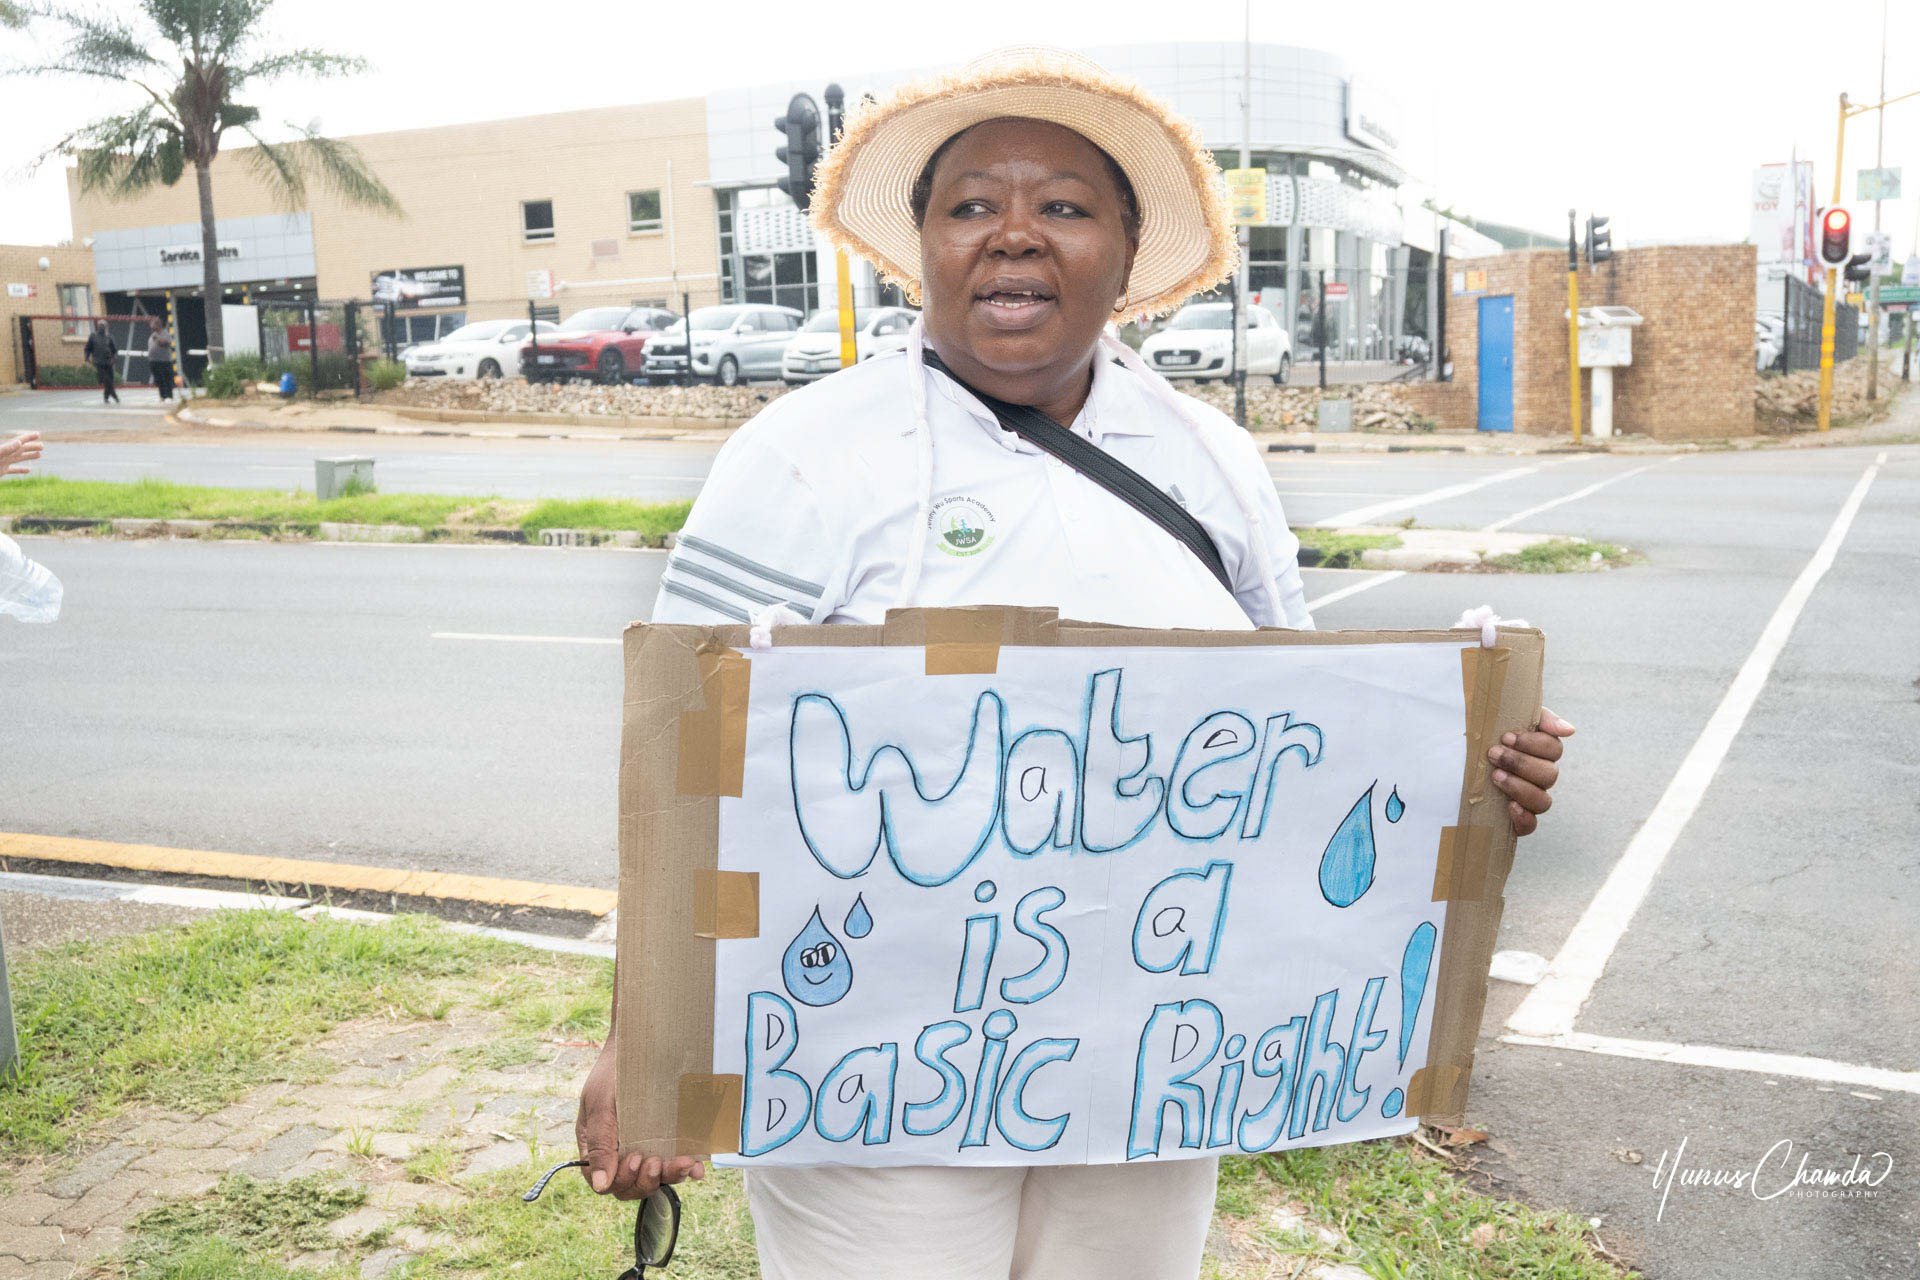 Service Centre
WELCOME TO
TOY
Jenny Wu Sports Academy
JWSA
Water
is a
Basic Right!
Yunus Chamda
PHOTOGRAPHY